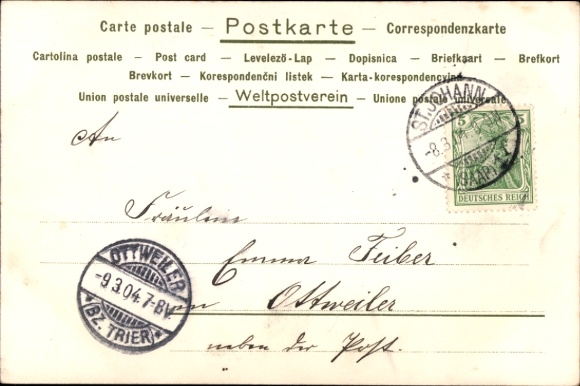 Carte postale — Postkarte — Correspondenzkarte
Cartolina postale — Post card — Levelező-Lap — Dopisnica — Briefkaart — Brefkort
Brevkort — Korespondenční listek — Karta-korespondencyjna
Union postale universelle — Weltpostverein — Unione postale universale
ST. JOHANN
-8.3.
* (SAAR) *
5 5
DEUTSCHES REICH
An
Fräulein
Emma Teiber
OTTWEILER
-9.3.04.7-8V.
* (BZ. TRIER) *
in Ottweiler
neben der Post.